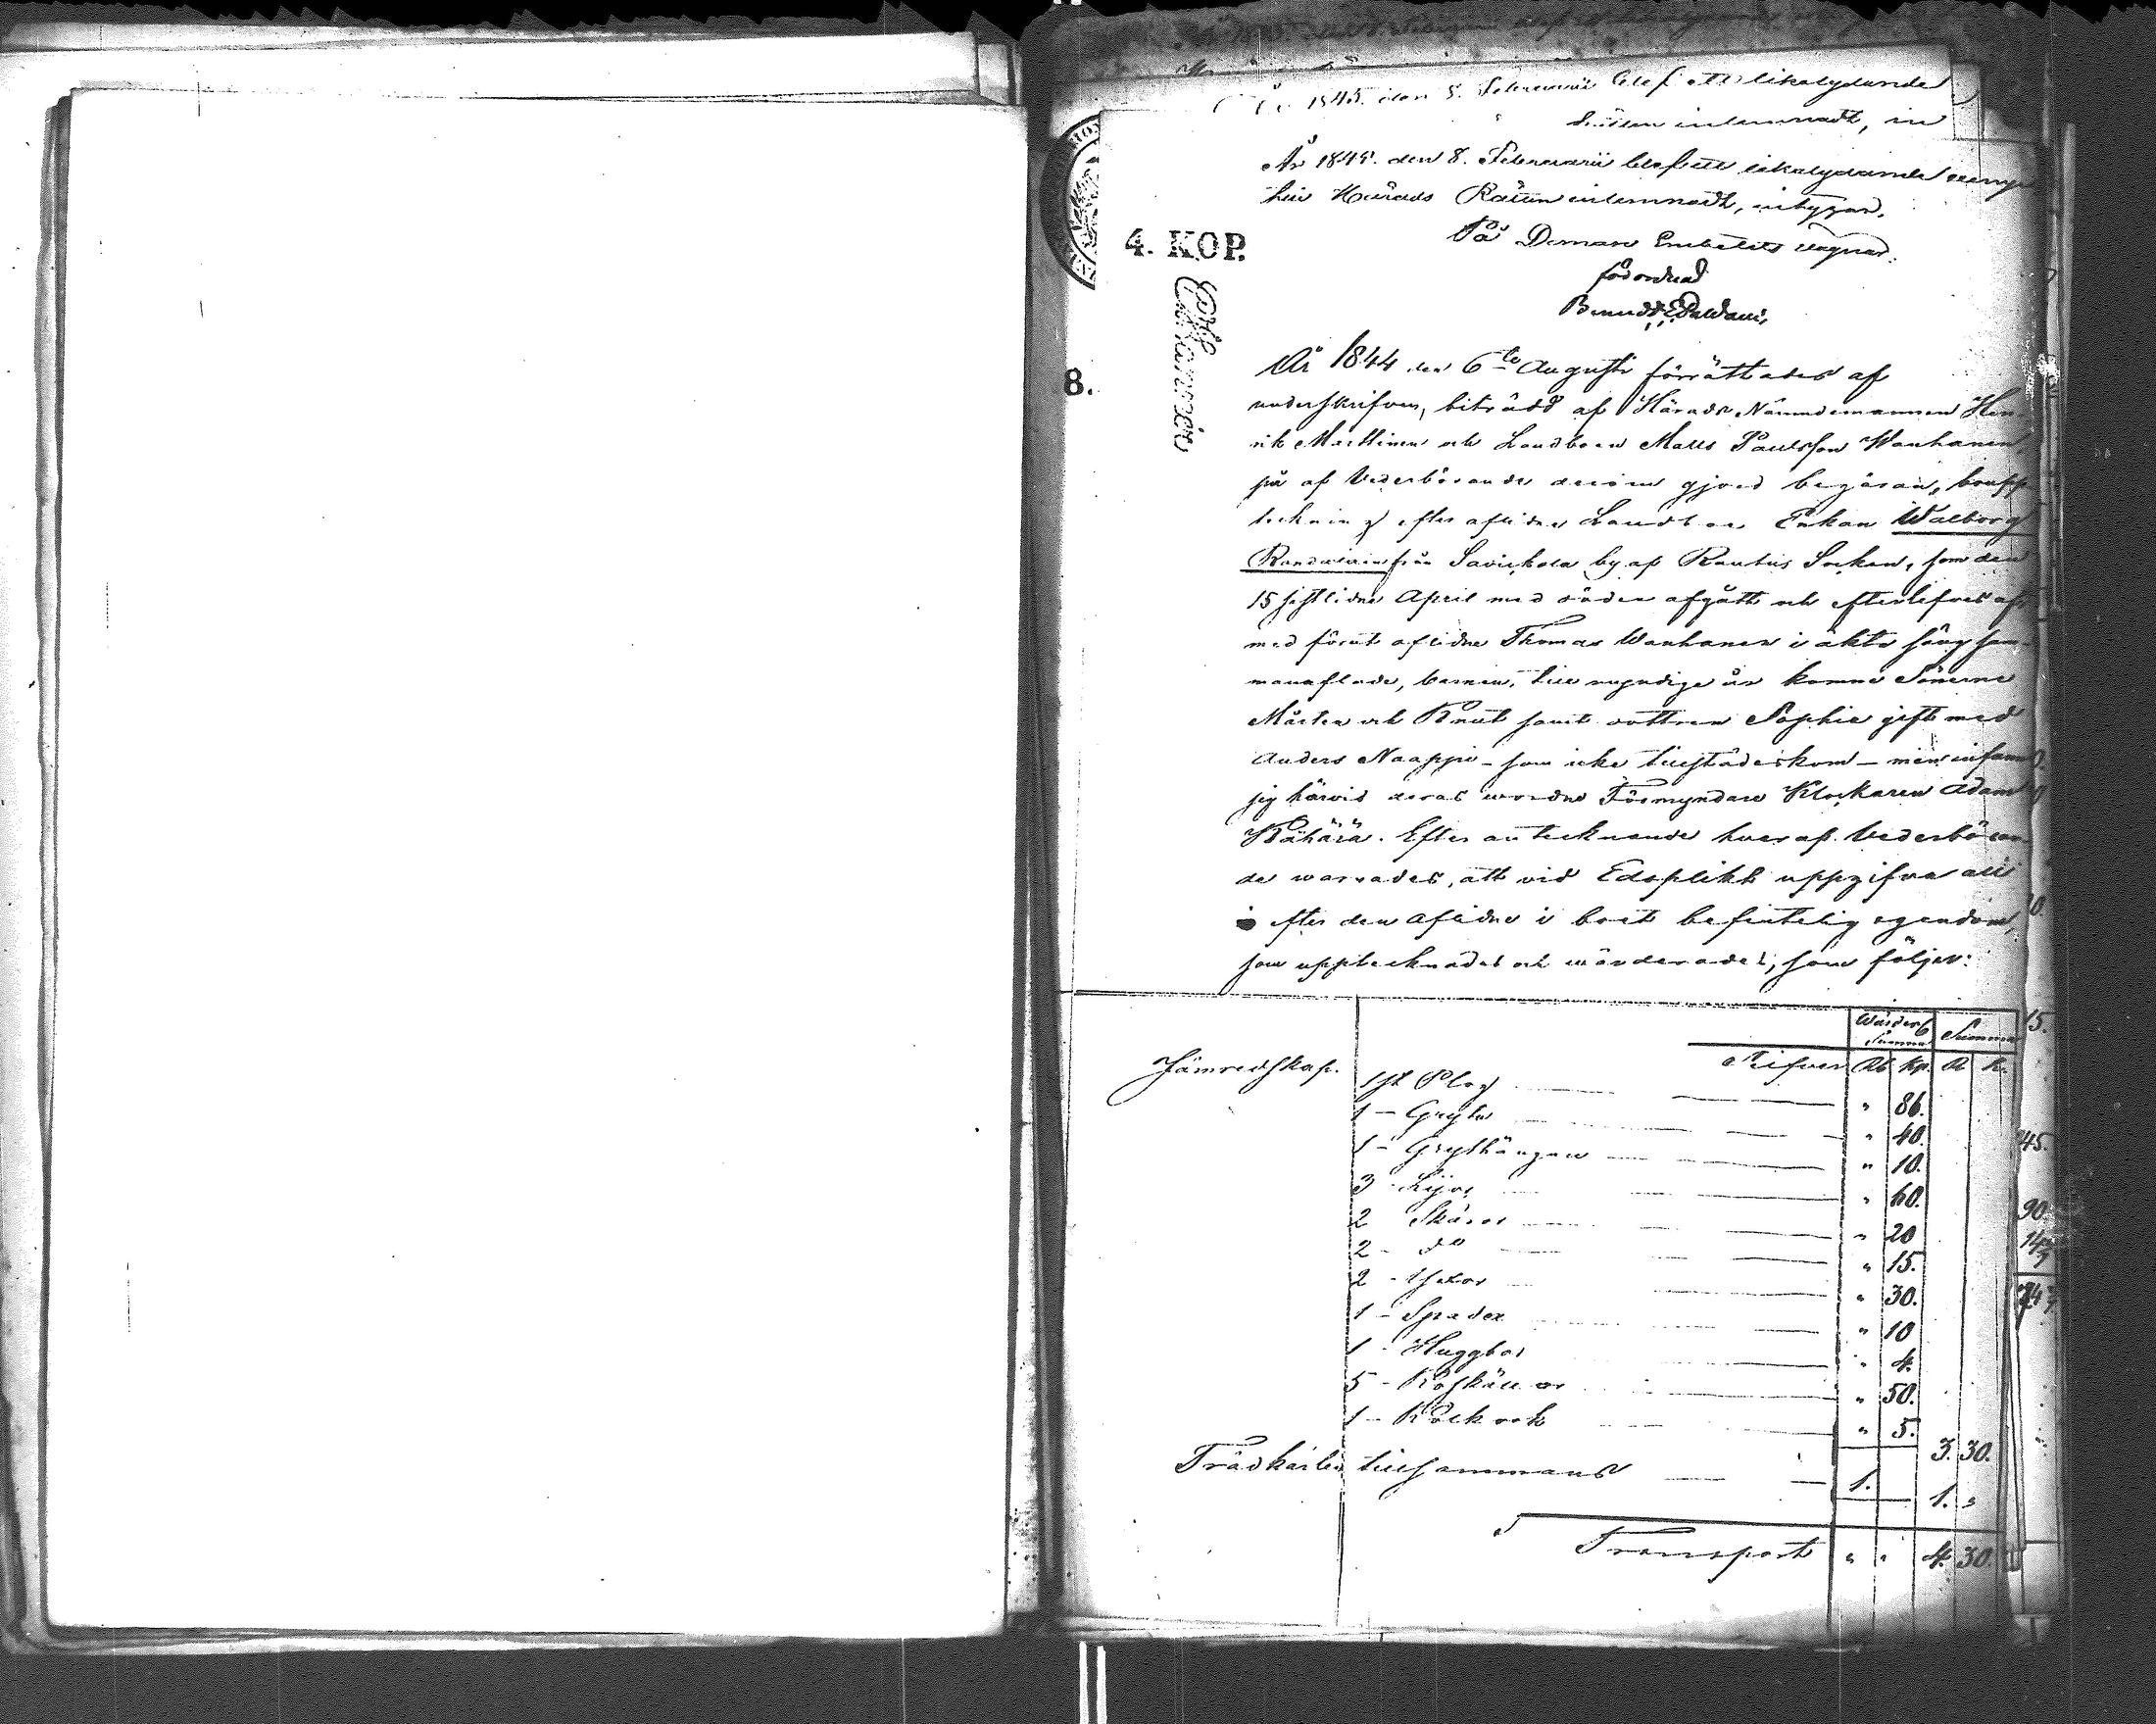 År 1845. den 8. Februarii blef ett likalydande
Rätten inlemnadt, in
År 1845. den 8. Februarii blef ett likalydande exempl
till Härads Rätten inlemnadt, intygar.
På Domare Embetets vägnar.
förordnad
4. KOP.
8.
År 1844 den 6te Augusti förrättades af
underskrifven, biträdd af Härads Nämndemannen Hen-
rik Marttinen och Landboen Matts Paulsson Wanhanen,
på af Vederbörande derom gjord begäran, bouppteckning
efter aflidna Landboe Enkan Walborg
från Savickola by af Rautus Socken, som den
15 sistlidne April med döden afgått och efterlefves af
med förut aflidne Thomas Wanhanen i äkta säng sam-
manaflade, barnen, till myndige år komne Sönerne
Mårten och Knut samt dottren Sophie gift med
Anders Naappi – som icke tillstädeskom – men infann
sig härvid deras vordne Förmyndare Klockaren Adam
Kähärä. Efter antecknande hvaraf Vederböran-
de warnades, att vid Edsplikt uppgifva all
efter den aflidne i boet befintelig egendom,
som upptecknades och wärderades, som följer:
Wärder. Summa Summa
Silfver Rb Kp. R K.
Järnredskap.
1 st Plog " 86.
1 – Gryta " 40.
1 – Grythängare " 10.
3 - Lijor " 60.
2 Skäror " 20
2 - do " 15.
2 - Yxor " 30.
1 – Spade " 10
1 - Huggbor " 4.
5 - Koskällor " 50.
1 – " 5. 3. 30.
Trädkärlen tillsammans 1. 1. "
Transport " " 4. 30.